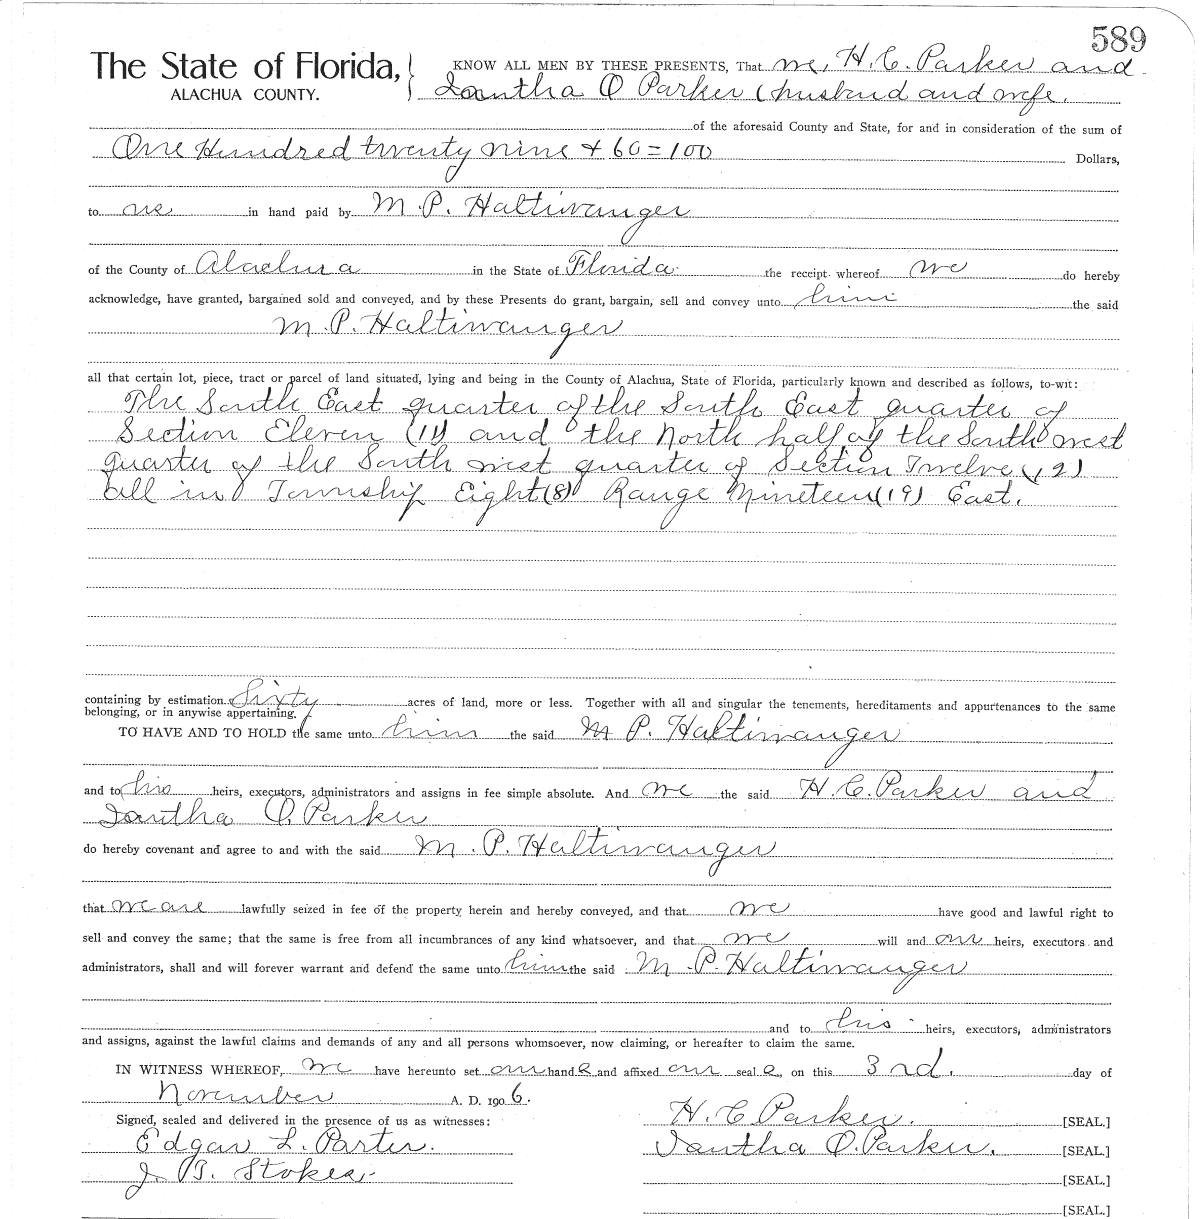 589
The State of Florida,
ALACHUA COUNTY.
KNOW ALL MEN BY THESE PRESENTS, That we, H. C. Parker and
Iantha O Parker (husband and wife.
of the aforesaid County and State, for and in consideration of the sum of
One Hundred twenty nine + 60=100 Dollars,
to us in hand paid by M. P. Haltiwanger
of the County of Alachua in the State of Florida the receipt whereof we do hereby
acknowledge, have granted, bargained sold and conveyed, and by these Presents do grant, bargain, sell and convey unto him the said
M. P. Haltiwanger
all that certain lot, piece, tract or parcel of land situated, lying and being in the County of Alachua, State of Florida, particularly known and described as follows, to-wit:
The South East quarter of the South East quarter of
Section Eleven (11) and the North half of the South west
quarter of the South west quarter of Section Twelve (12)
all in Township Eight (8) Range Nineteen (19) East.
containing by estimation Sixty acres of land, more or less. Together with all and singular the tenements, hereditaments and appurtenances to the same
belonging, or in anywise appertaining.
TO HAVE AND TO HOLD the same unto him the said M P. Haltiwanger
and to his heirs, executors, administrators and assigns in fee simple absolute. And we the said H. C. Parker and
Iantha O. Parker
do hereby covenant and agree to and with the said M. P. Haltiwanger
that we are lawfully seized in fee of the property herein and hereby conveyed, and that we have good and lawful right to
sell and convey the same; that the same is free from all incumbrances of any kind whatsoever, and that we will and our heirs, executors and
administrators, shall and will forever warrant and defend the same unto him the said M. P. Haltiwanger
and to his heirs, executors, administrators
and assigns, against the lawful claims and demands of any and all persons whomsoever, now claiming, or hereafter to claim the same.
IN WITNESS WHEREOF, we have hereunto set our hands and affixed our seals, on this 3rd. day of
November A. D. 1906.
Signed, sealed and delivered in the presence of us as witnesses:
H. C Parker. [SEAL.]
Edgar L. Parter.
Iantha O. Parker. [SEAL.]
J. B. Stokes.
[SEAL.]
[SEAL.]